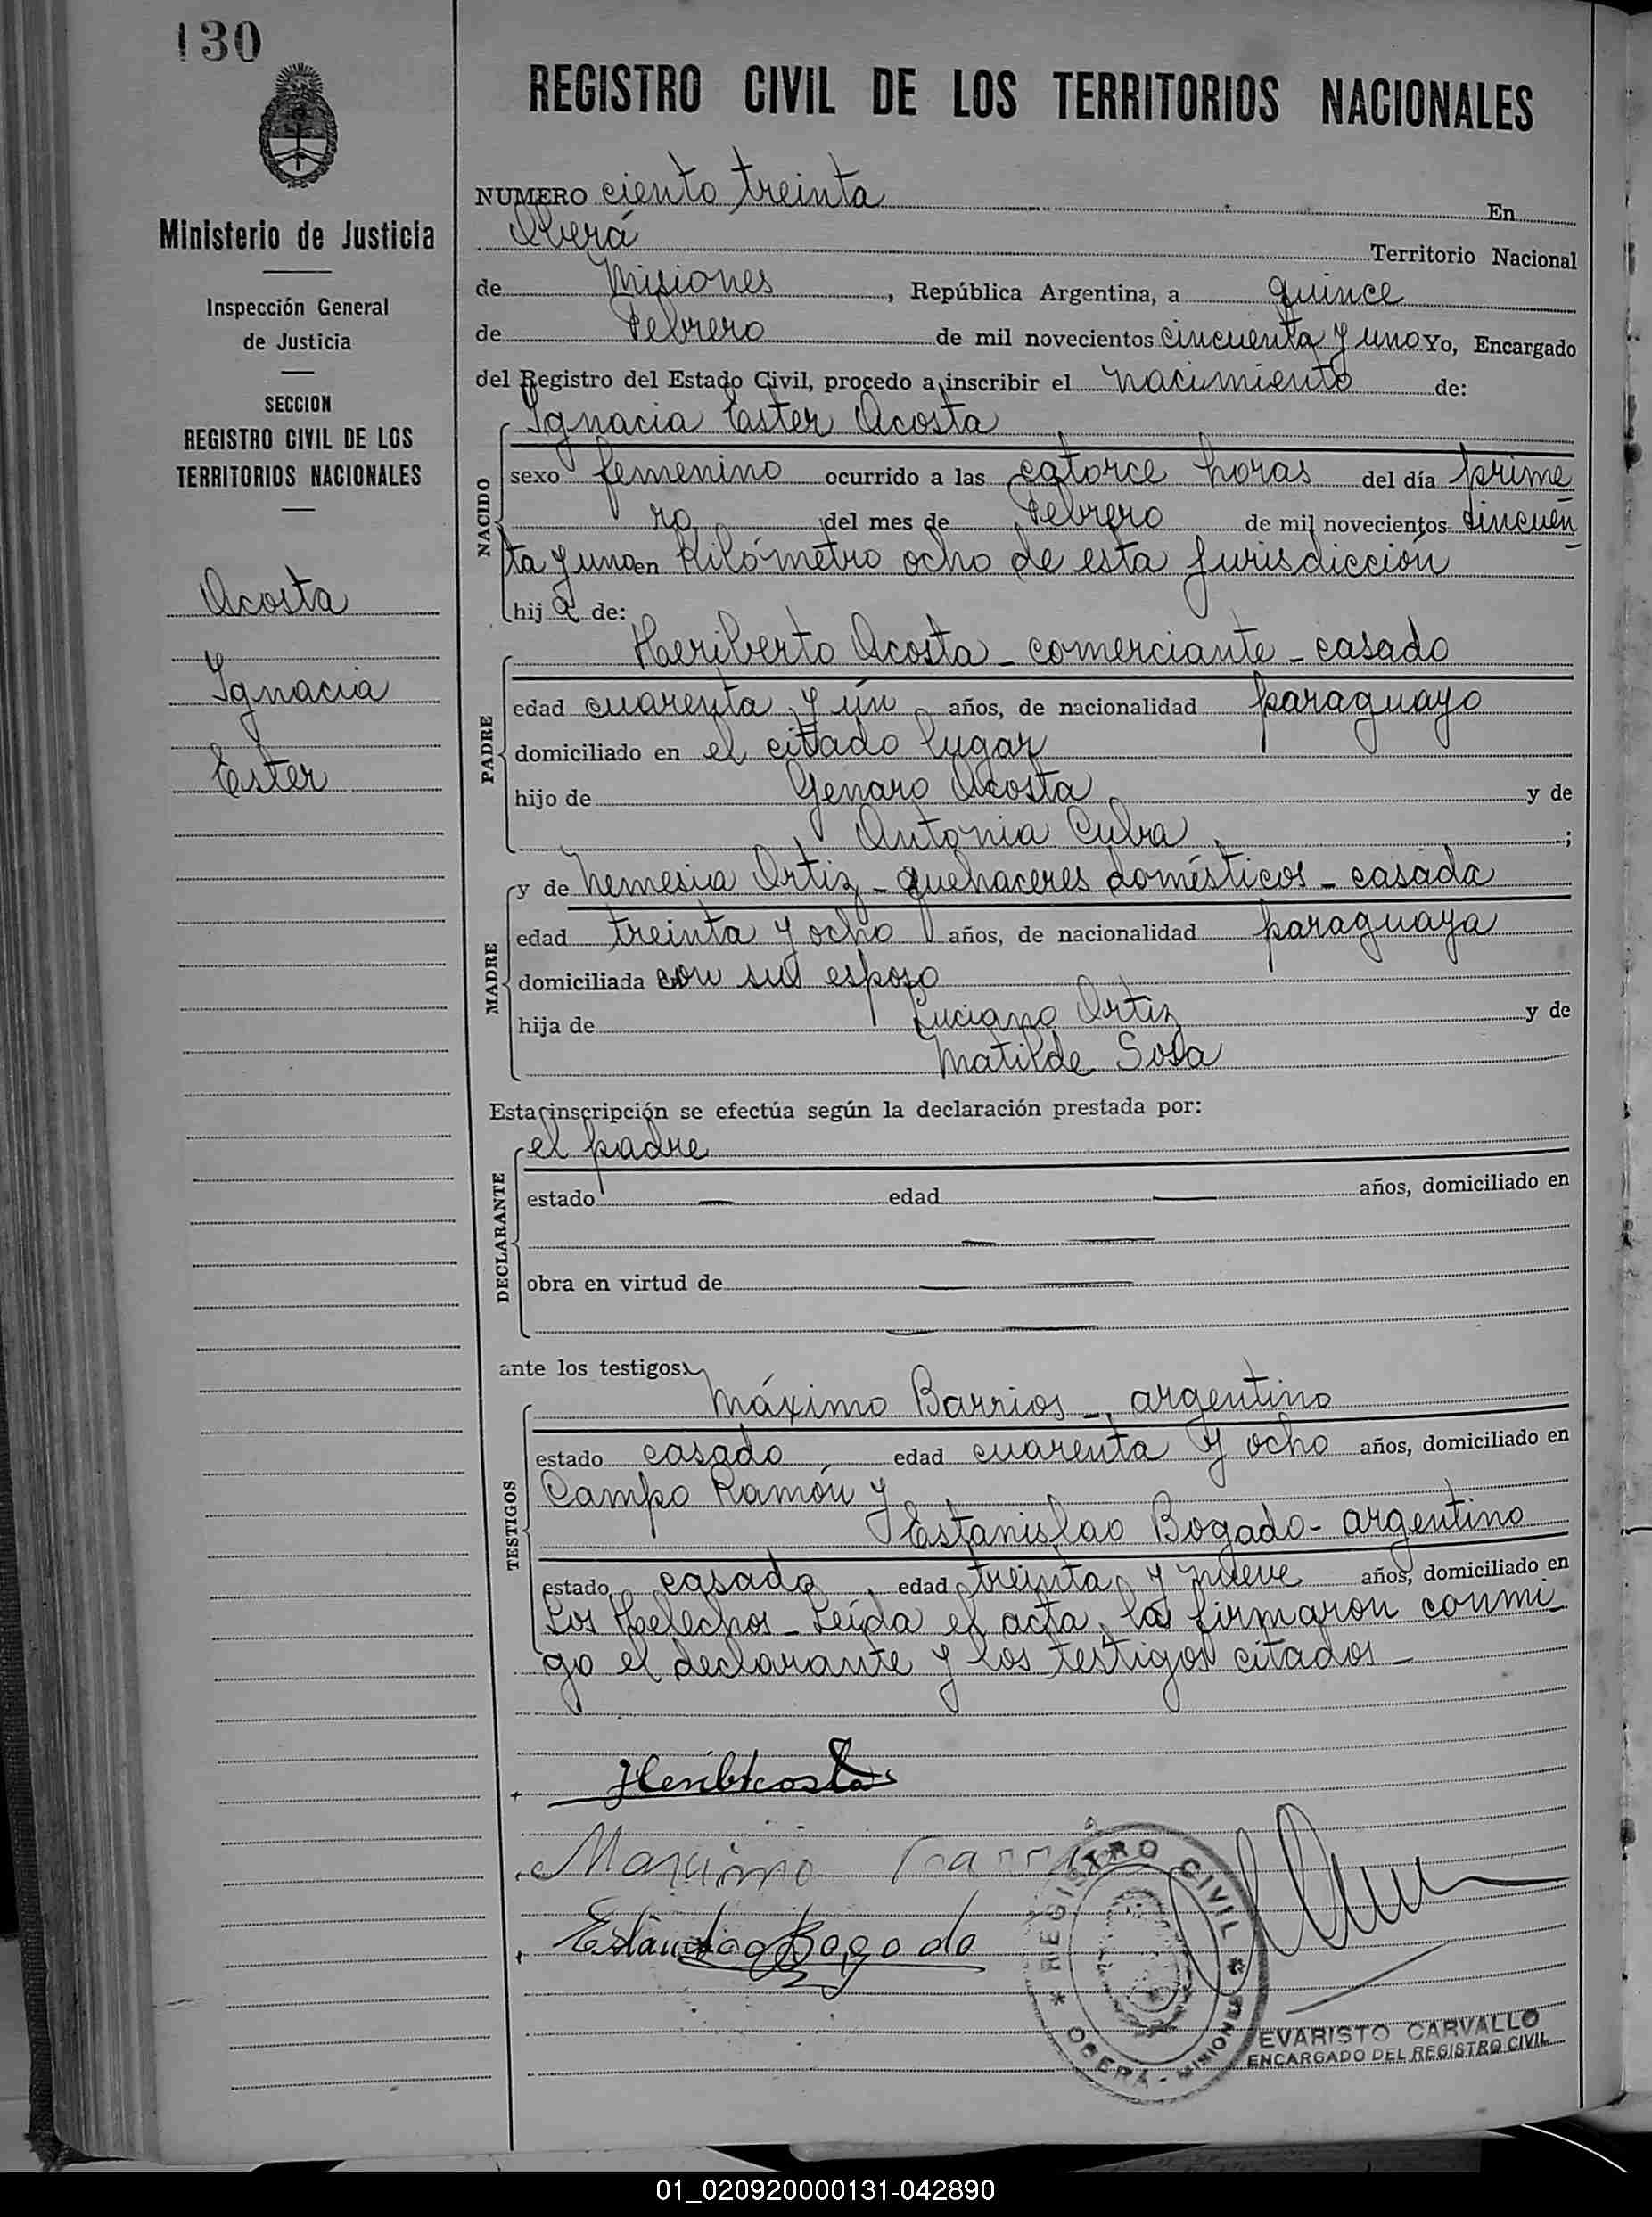 130
REGISTRO CIVIL DE LOS TERRITORIOS NACIONALES
Ministerio de Justicia
Inspección General
de Justicia
SECCION
REGISTRO CIVIL DE LOS
TERRITORIOS NACIONALES
Acosta
Ignacia
Ester
NUMERO ciento treinta En
Oberá Territorio Nacional
de Misiones, República Argentina, a quince
de Febrero de mil novecientos cincuenta y uno Yo, Encargado
del Registro del Estado Civil, procedo a inscribir el nacimiento de:
Ignacia Ester Acosta
NACIDO
sexo femenino ocurrido a las catorce horas del día prime
ro del mes de Febrero de mil novecientos cincuen
ta y uno en Kilómetro ocho de esta jurisdicción
hij a de:
Heriberto Acosta - comerciante - casado
PADRE
edad cuarenta y un años, de nacionalidad paraguayo
domiciliado en el citado lugar
hijo de Genaro Acosta y de
Antonia Cuba ;
y de Nemesia Ortiz - quehaceres domésticos - casada
MADRE
edad treinta y ocho años, de nacionalidad paraguaya
domiciliada con su esposo
hija de Luciano Ortiz y de
Matilde Sosa
Esta inscripción se efectúa según la declaración prestada por:
el padre
DECLARANTE
estado — edad — años, domiciliado en
obra en virtud de
ante los testigos:
Máximo Barrios - argentino
TESTIGOS
estado casado edad cuarenta y ocho años, domiciliado en
Campo Ramón y
Estanislao Bogado - argentino
estado casado, edad treinta y nueve años, domiciliado en
Los Helechos - Leída el acta, la firmaron conmi
go el declarante y los testigos citados -
Maximo
Bogado
REGISTRO CIVIL
* OBERA - MISIONES *
EVARISTO CARVALLO
ENCARGADO DEL REGISTRO CIVIL
01_020920000131-042890